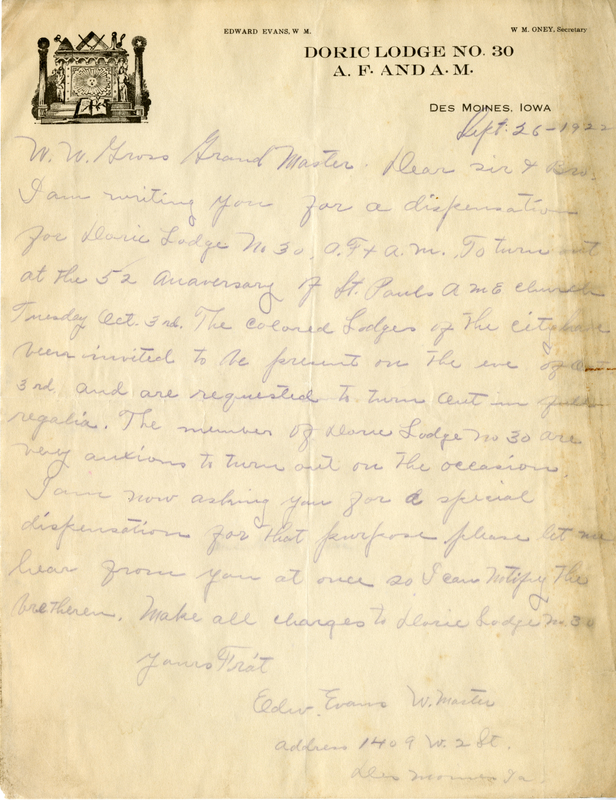 EDWARD EVANS, W M.
W M. ONEY, Secretary
DORIC LODGE NO. 30
A. F. AND A. M.
DES MOINES, IOWA
Sept. 26-1922
W. W. Gross Grand Master. Dear sir & Bro.
I am writing you for a dispensation
for Doric Lodge No 30, A.F & A.M. To turn out
at the 52 Anaversary of St. Pauls A M E church
Tuesday Oct. 3rd. The colored Lodges of the city have
been invited to be present on the eve of
3rd and are requested to turn out in full
regalia. The member of Doric Lodge No 30 are
very anxions to turn out on the occasion
I am now asking you for a special
dispensation for that purpose please let me
hear from you at once so I can Notify the
bretheren. Make all charges to Doric Lodge No. 30
Yours Frat
Edw. Evans W. Master
address 1409 W. 2 St.
Des Moines Ia.